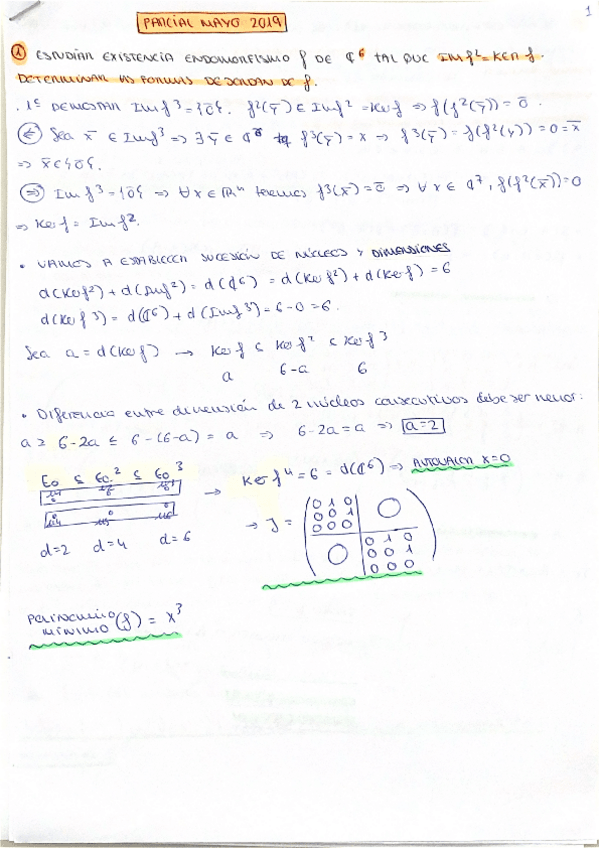 PARCIAL MAYO 2019
1
① ESTUDIAR EXISTENCIA ENDOMORFISMO f DE ₵⁶ TAL QUE Imf² = KER f.
DETERMINAR LAS FORMAS DE JORDAN DE f.
. 1º DEMOSTRAR Imf³ = {0̄}. f²(ȳ) ∈ Imf² = Kerf ⇒ f(f²(ȳ)) = 0̄.
(⇐) Sea x̄ ∈ Imf³ ⇒ ∃ ȳ ∈ ₵⁶ tq f³(ȳ) = x ⇒ f³(ȳ) = f(f²(y)) = 0 = x̄
⇒ x̄ ∈ {0̄}.
(⇒) Imf³ = {0̄} ⇒ ∀x ∈ ℝⁿ tenemos f³(x̄) = 0̄ ⇒ ∀x ∈ ₵⁷, f(f²(x̄)) = 0
⇒ Kerf = Imf².
• VAMOS A ESTABLECER SUCESIÓN DE NÚCLEOS Y DIMENSIONES
d(Kerf²) + d(Imf²) = d(₵⁶) = d(Kerf²) + d(Kerf) = 6
d(Kerf³) = d(₵⁶) + d(Imf³) = 6 - 0 = 6.
Sea a = d(Kerf) → Kerf ⊊ Kerf² ⊊ Kerf³
a 6-a 6
• Diferencia entre dimensión de 2 núcleos consecutivos debe ser menor:
a ≥ 6-2a ≤ 6-(6-a) = a ⇒ 6-2a = a ⇒ a=2
E₀ ⊊ E₀² ⊊ E₀³
d=2 d=4 d=6
→ Kerf⁴ = 6 = d(₵⁶) ⇒ AUTOVALOR X=0
→ J =
0 1 0
0 0 1
0 0 0
0
0
0 1 0
0 0 1
0 0 0
POLINOMIO MÍNIMO (f) = X³